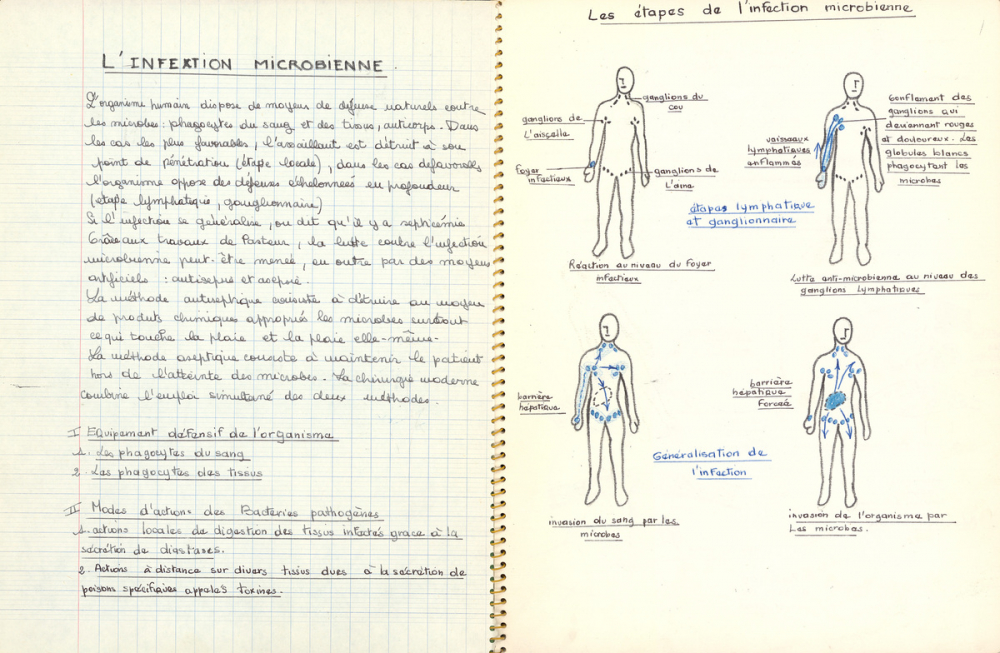 L'INFEXTION MICROBIENNE.
L'organisme humain dispose de moyens de défense naturels contre
les microbes : phagocytes du sang et des tissus, anticorps. Dans
les cas les plus favorables, l'assaillant est détruit à son
point de pénétration (étape locale), dans les cas défavorables
l'organisme oppose des défenses échelonnées en profondeur
(étape lymphatique, ganglionnaire)
Si l'infection se généralise, on dit qu'il y a septicémie
Grâce aux travaux de Pasteur, la lutte contre l'infection
microbienne peut-être menée, en outre par des moyens
artificiels : antisepsie et asepsie.
La méthode antiseptique consiste à détruire au moyen
de produits chimiques appropriés les microbes surtout
ce qui touche la plaie et la plaie elle-même-
La méthode aseptique consiste à maintenir le patient
hors de l'atteinte des microbes. La chirurgie moderne
combine l'emploi simultané des deux méthodes.
I Equipement défensif de l'organisme
1. Les phagocytes du sang
2. Les phagocytes des tissus
II Modes d'actions des Bactéries pathogènes
1. actions locales de digestion des tissus infectés grace à la
sécrétion de diastases.
2. Actions à distance sur divers tissus dues à la sécrétion de
poisons spécifiques appelés toxines.
Les étapes de l'infection microbienne
ganglions du
cou
ganglions de
L'aisselle
Foyer
infectieux
ganglions de
L'aine
Réaction au niveau du Foyer
infectieux
Gonflement des
ganglions qui
deviennent rouges
et douloureux. Les
globules blancs
phagocytant les
microbes
vaisseaux
lymphatiques
enflammés
étapes lymphatique
et ganglionnaire
Lutte anti-microbienne au niveau des
ganglions Lymphatiques
barrière
hépatique
invasion du sang par les
microbes
Généralisation de
l'infection
barrière
hépatique
Forcée
invasion de l'organisme par
Les microbes.